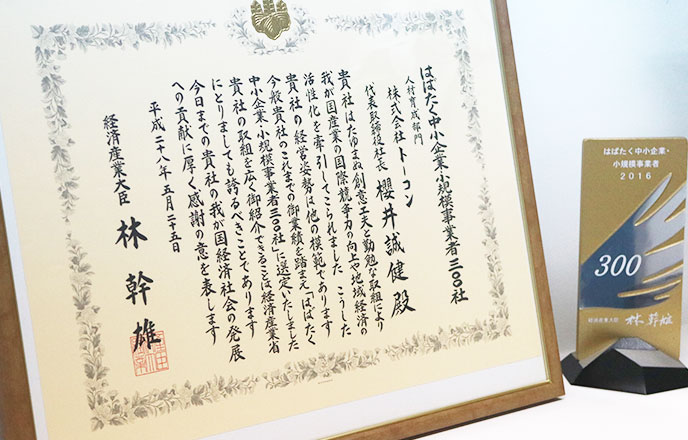 はばたく中小企業・小規模事業者三〇〇社
人材育成部門
株式会社 トーコン
代表取締役社長 櫻井誠健殿
貴社はたゆまぬ創意工夫と勤勉な取組により
我が国産業の国際競争力の向上や地域経済の
活性化を牽引してこられました こうした
貴社の経営姿勢は他の模範であります
今般貴社のこれまでの御業績を踏まえ「はばたく
中小企業・小規模事業者三〇〇社」に選定いたしました
貴社の取組を広く御紹介できることは経済産業省
にとりましても誇るべきことであります
今日までの貴社の我が国経済社会の発展
への貢献に厚く感謝の意を表します
平成二十八年五月二十五日
経済産業大臣 林幹雄
はばたく中小企業・
小規模事業者
2016
300
経済産業大臣 林幹雄